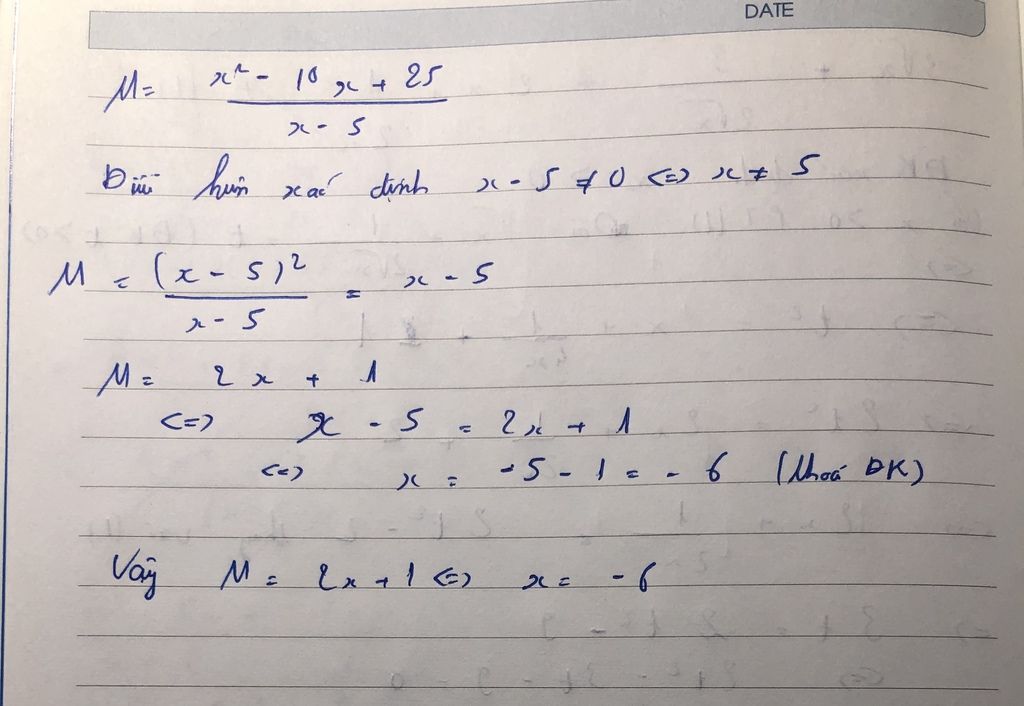 DATE
M = \frac{x² - 10x + 25}{x - 5}
Điều kiện xác định x - 5 ≠ 0 <=> x ≠ 5
M = \frac{(x - 5)²}{x - 5} = x - 5
M = 2x + 1
<=> x - 5 = 2x + 1
<=> x = -5 - 1 = -6 (thoả ĐK)
Vậy M = 2x + 1 <=> x = -6